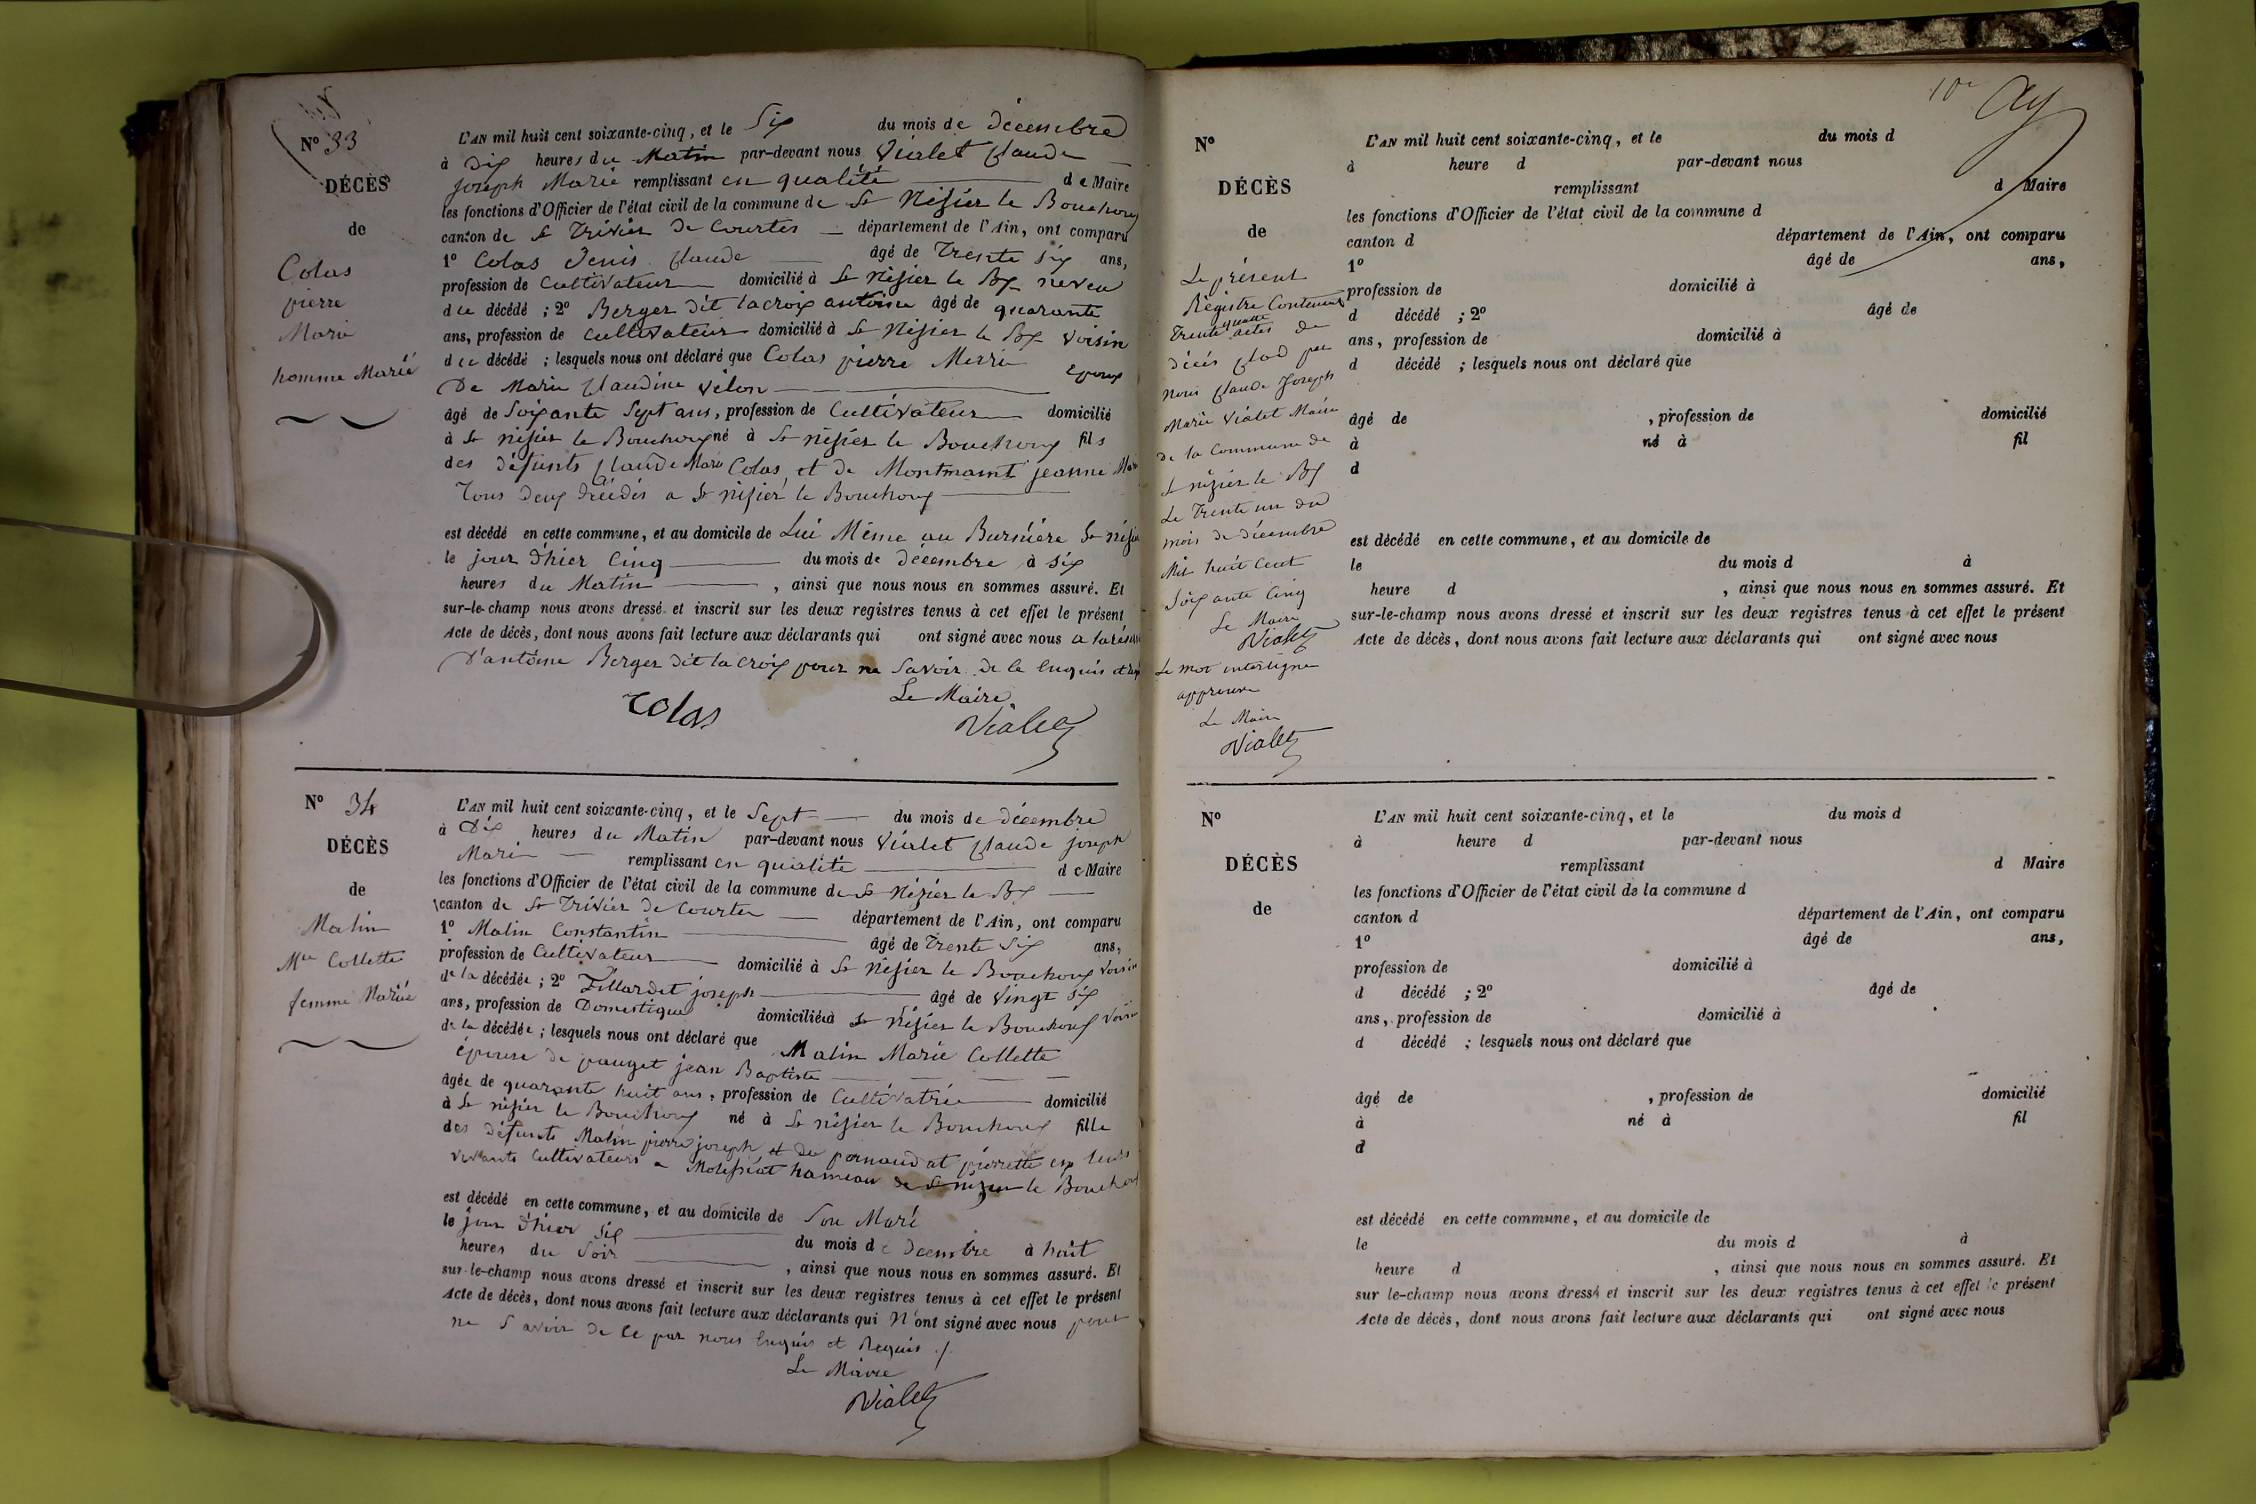 N° 33
DÉCÈS
de
Colas
pierre
Marie
homme Marié
L'AN mil huit cent soixante-cinq, et le Six du mois de décembre
à Dix heures du Matin par-devant nous Vialet Claude
joseph Marie remplissant en qualité de Maire
les fonctions d'Officier de l'état civil de la commune de St Nisier le Bouchoux
canton de St Trivier De Courtes département de l'Ain, ont comparu
1° Colas Denis Claude âgé de Trente Six ans,
profession de Cultivateur domicilié à St Nisier le Bx neveu
du décédé ; 2° Berger dit lacroix antoine âgé de quarante
ans, profession de Cultivateur domicilié à St Nisier le Bx Voisin
du décédé ; lesquels nous ont déclaré que Colas pierre Merri Epoux
De Marie Claudine Vélon
âgé de Soixante Sept ans, profession de Cultivateur domicilié
à St nisier le Bouchoux né à St nisier le Bouchoux fils
des défunts Claude Marie Colas et de Montmaint jeanne Marie
Tous deux décédés a St nisier le Bouchoux
est décédé en cette commune, et au domicile de Lui Même au Burnière St nisier
le jour d'hier Cinq du mois de décembre à Six
heures du Matin , ainsi que nous nous en sommes assuré. Et
sur-le-champ nous avons dressé et inscrit sur les deux registres tenus à cet effet le présent
Acte de décès, dont nous avons fait lecture aux déclarants qui ont signé avec nous
D'antoine Berger dit lacroix pour ne Savoir de Ce Enquis
Colas
Le Maire
Vialet
N° 34
DÉCÈS
de
Matin
Mie Collette
femme Mariée
L'AN mil huit cent soixante-cinq, et le Sept du mois de décembre
à Dix heures du Matin par-devant nous Vialet Claude joseph
Marie remplissant en qualité de Maire
les fonctions d'Officier de l'état civil de la commune de St Nizier le Bx
canton de St Trivier De Courtes département de l'Ain, ont comparu
1° Matin Constantin âgé de Trente Six ans,
profession de Cultivateur domicilié à St Nisier le Bouchoux Voisin
de la décédée ; 2° Tillardet joseph âgé de Vingt Six
ans, profession de Domestique domicilié à St Nisier le Bouchoux Voisin
de la décédée ; lesquels nous ont déclaré que Matin Marie Collette
épouse de pauget jean Baptiste
âgée de quarante huit ans, profession de Cultivatrice domicilié
à St nisier le Bouchoux né à St nisier le Bouchoux fille
des défunts Matin pierre joseph et de pernaudat pierrette en leurs
vivants Cultivateurs a Molissiat hameau de St nizier le Bouchoux
est décédé en cette commune, et au domicile de Son Mari
le jour d'hier Six du mois de Décembre à huit
heures du Soir , ainsi que nous nous en sommes assuré. Et
sur-le-champ nous avons dressé et inscrit sur les deux registres tenus à cet effet le présent
Acte de décès, dont nous avons fait lecture aux déclarants qui N'ont signé avec nous pour
ne Savoir de Ce par nous Enquis et Requis ./.
Le Maire
Vialet
N°
DÉCÈS
de
Le présent
Régistre Contenant
Trente quatre actes de
décès Clos par
nous Claude Joseph
Marie Vialet Maire
de la Commune de
St nizier le Bx
Le Trente un du
mois de décembre
Mil huit Cent
Soixante Cinq
Le Maire
Vialet
Le mot interligne
approuvé
Le Maire
Vialet
L'AN mil huit cent soixante-cinq, et le du mois d
à heure d par-devant nous
remplissant d Maire
les fonctions d'Officier de l'état civil de la commune d
canton d département de l'Ain, ont comparu
1° âgé de ans,
profession de domicilié à
d décédé ; 2° âgé de
ans, profession de domicilié à
d décédé ; lesquels nous ont déclaré que
âgé de , profession de domicilié
à né à fil
d
est décédé en cette commune, et au domicile de
le du mois d à
heure d , ainsi que nous nous en sommes assuré. Et
sur-le-champ nous avons dressé et inscrit sur les deux registres tenus à cet effet le présent
Acte de décès, dont nous avons fait lecture aux déclarants qui ont signé avec nous
N°
DÉCÈS
de
L'AN mil huit cent soixante-cinq, et le du mois d
à heure d par-devant nous
remplissant d Maire
les fonctions d'Officier de l'état civil de la commune d
canton d département de l'Ain, ont comparu
1° âgé de ans,
profession de domicilié à
d décédé ; 2° âgé de
ans, profession de domicilié à
d décédé ; lesquels nous ont déclaré que
âgé de , profession de domicilié
à né à fil
d
est décédé en cette commune, et au domicile de
le du mois d à
heure d , ainsi que nous nous en sommes assuré. Et
sur le-champ nous avons dressé et inscrit sur les deux registres tenus à cet effet le présent
Acte de décès, dont nous avons fait lecture aux déclarants qui ont signé avec nous